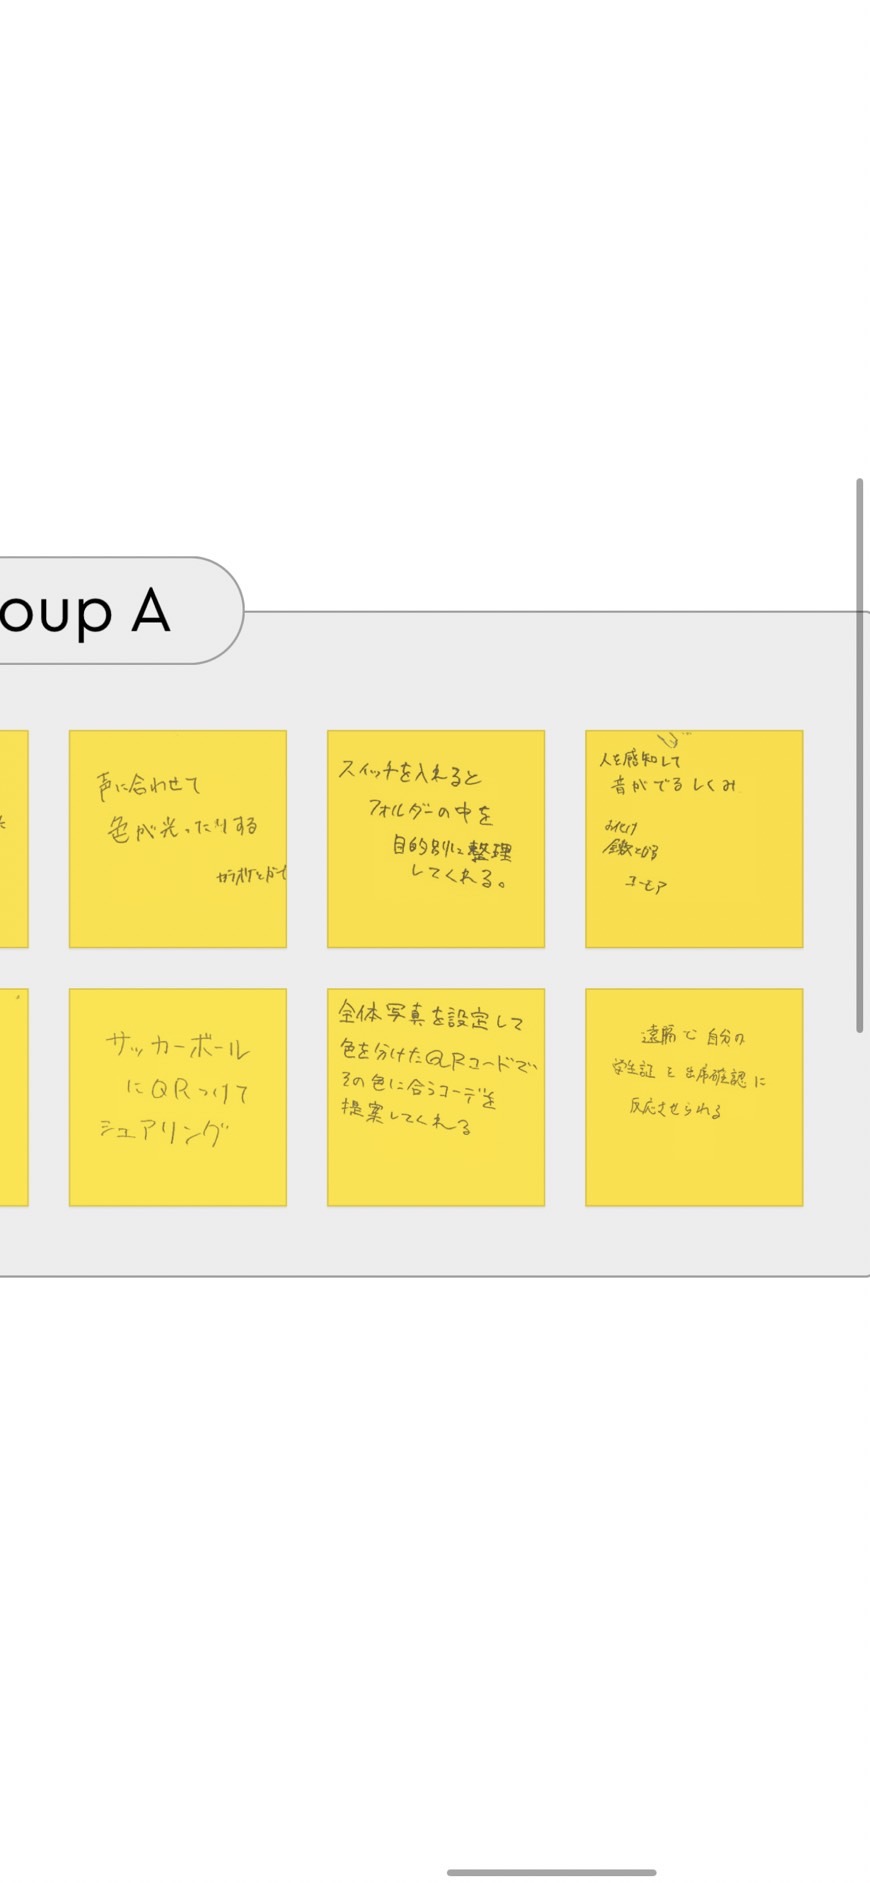 oup A
声に合わせて
色が光ったりする
スイッチを入れると
フォルダーの中を
目的別に整理
してくれる。
人を感知して
音がでるしくみ
サッカーボール
にQRつけて
シェアリング
全体写真を設定して
色を分けたQRコードで
その色に合うコーデを
提案してくれる
遠隔で自分の
学生証を出席確認に
反応させられる